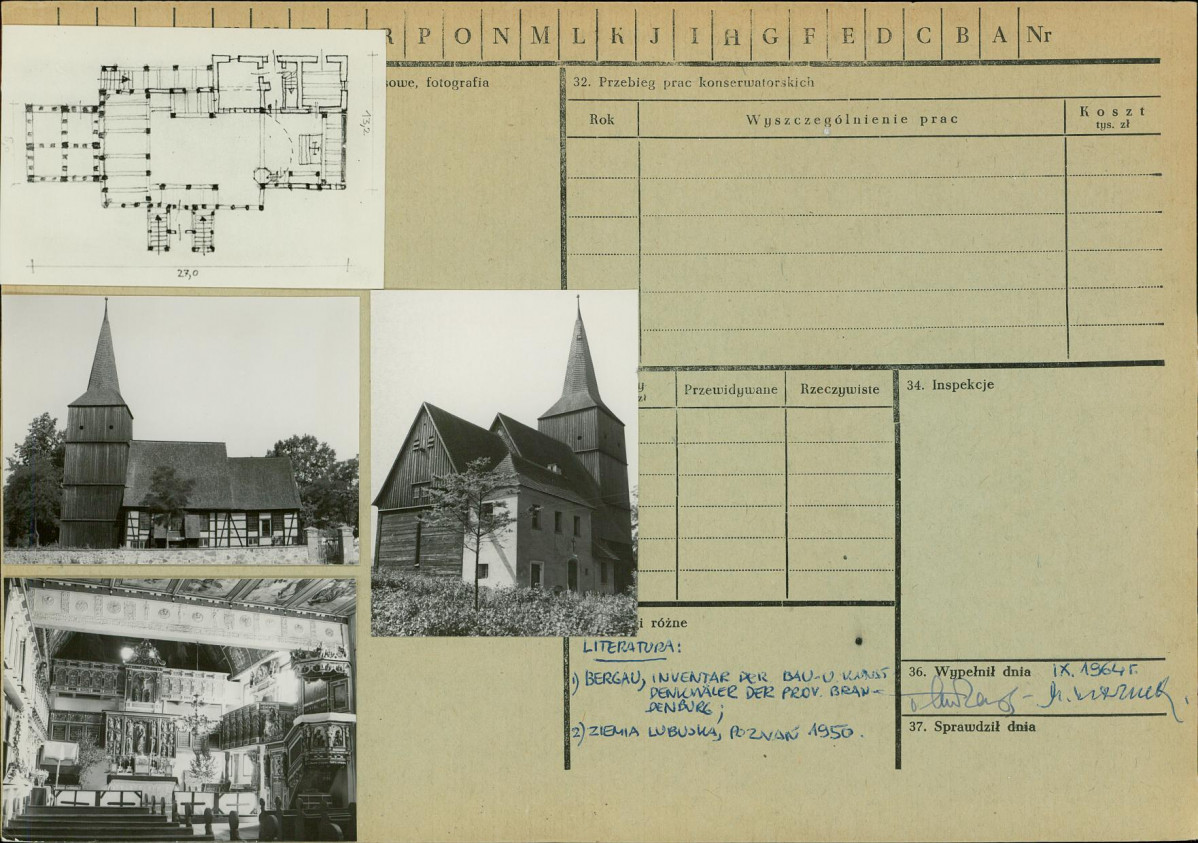 R P O N M L K J I H G F E D C B A Nr
sowe, fotografia
32. Przebieg prac konserwatorskich
Rok
Wyszczególnienie prac
Koszt
tys. zł
13,2
27,0
y
zł
Przewidywane
Rzeczywiste
34. Inspekcje
i różne
LITERATURA:
1) BERGAU, INVENTAR DER BAU-U. KUNST
DENKMÄLER DER PROV. BRAN-
DENBURG;
2) ZIEMIA LUBUSKA, POZNAŃ 1950.
36. Wypełnił dnia IX. 1964 r.
37. Sprawdził dnia